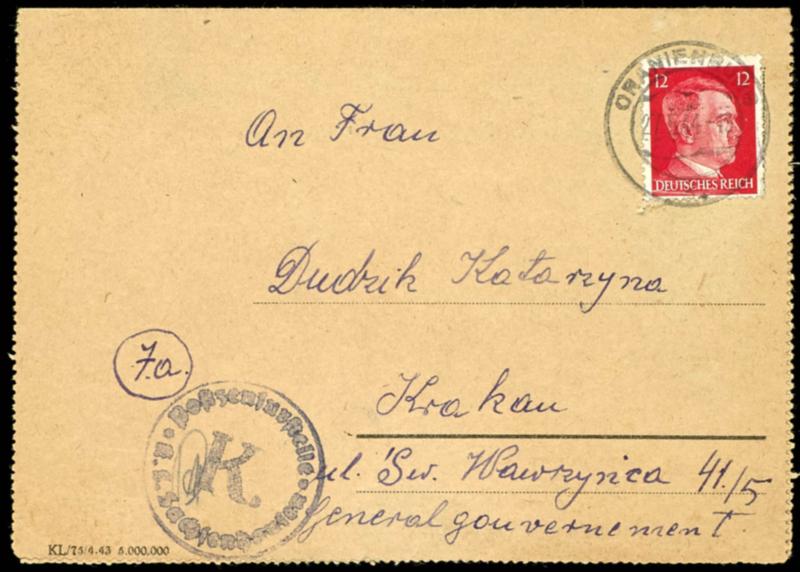 ORANIENBURG
12 12
DEUTSCHES REICH
An Frau
Dudzik Katarzyna
7a.
Krakau
Postzensurstelle
K
K.L. Sachsenhausen
ul. Św. Wawrzyńca 41/5
Generalgouvernement
KL/75/4.43 5.000.000